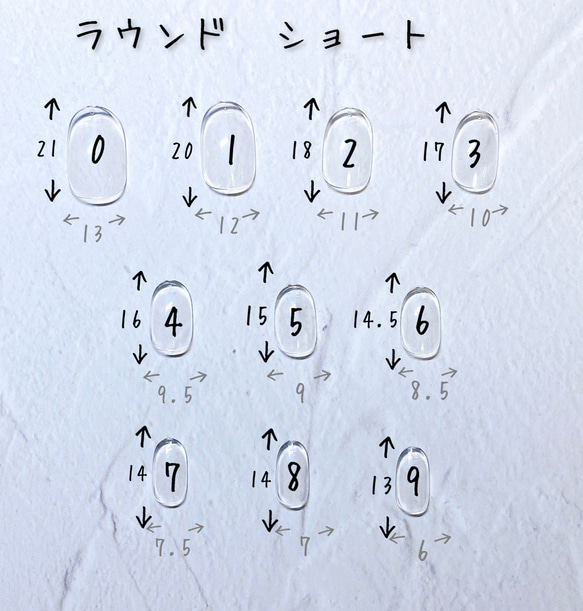 ラウンド ショート
21 0 20 1 18 2 17 3
13 12 11 10
16 4 15 5 14.5 6
9.5 9 8.5
14 7 14 8 13 9
7.5 7 6